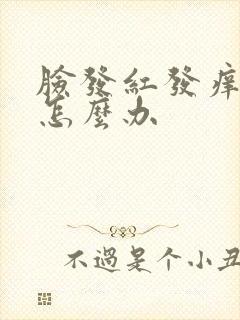 臉發紅發痒
怎麼办
不過是个小丑